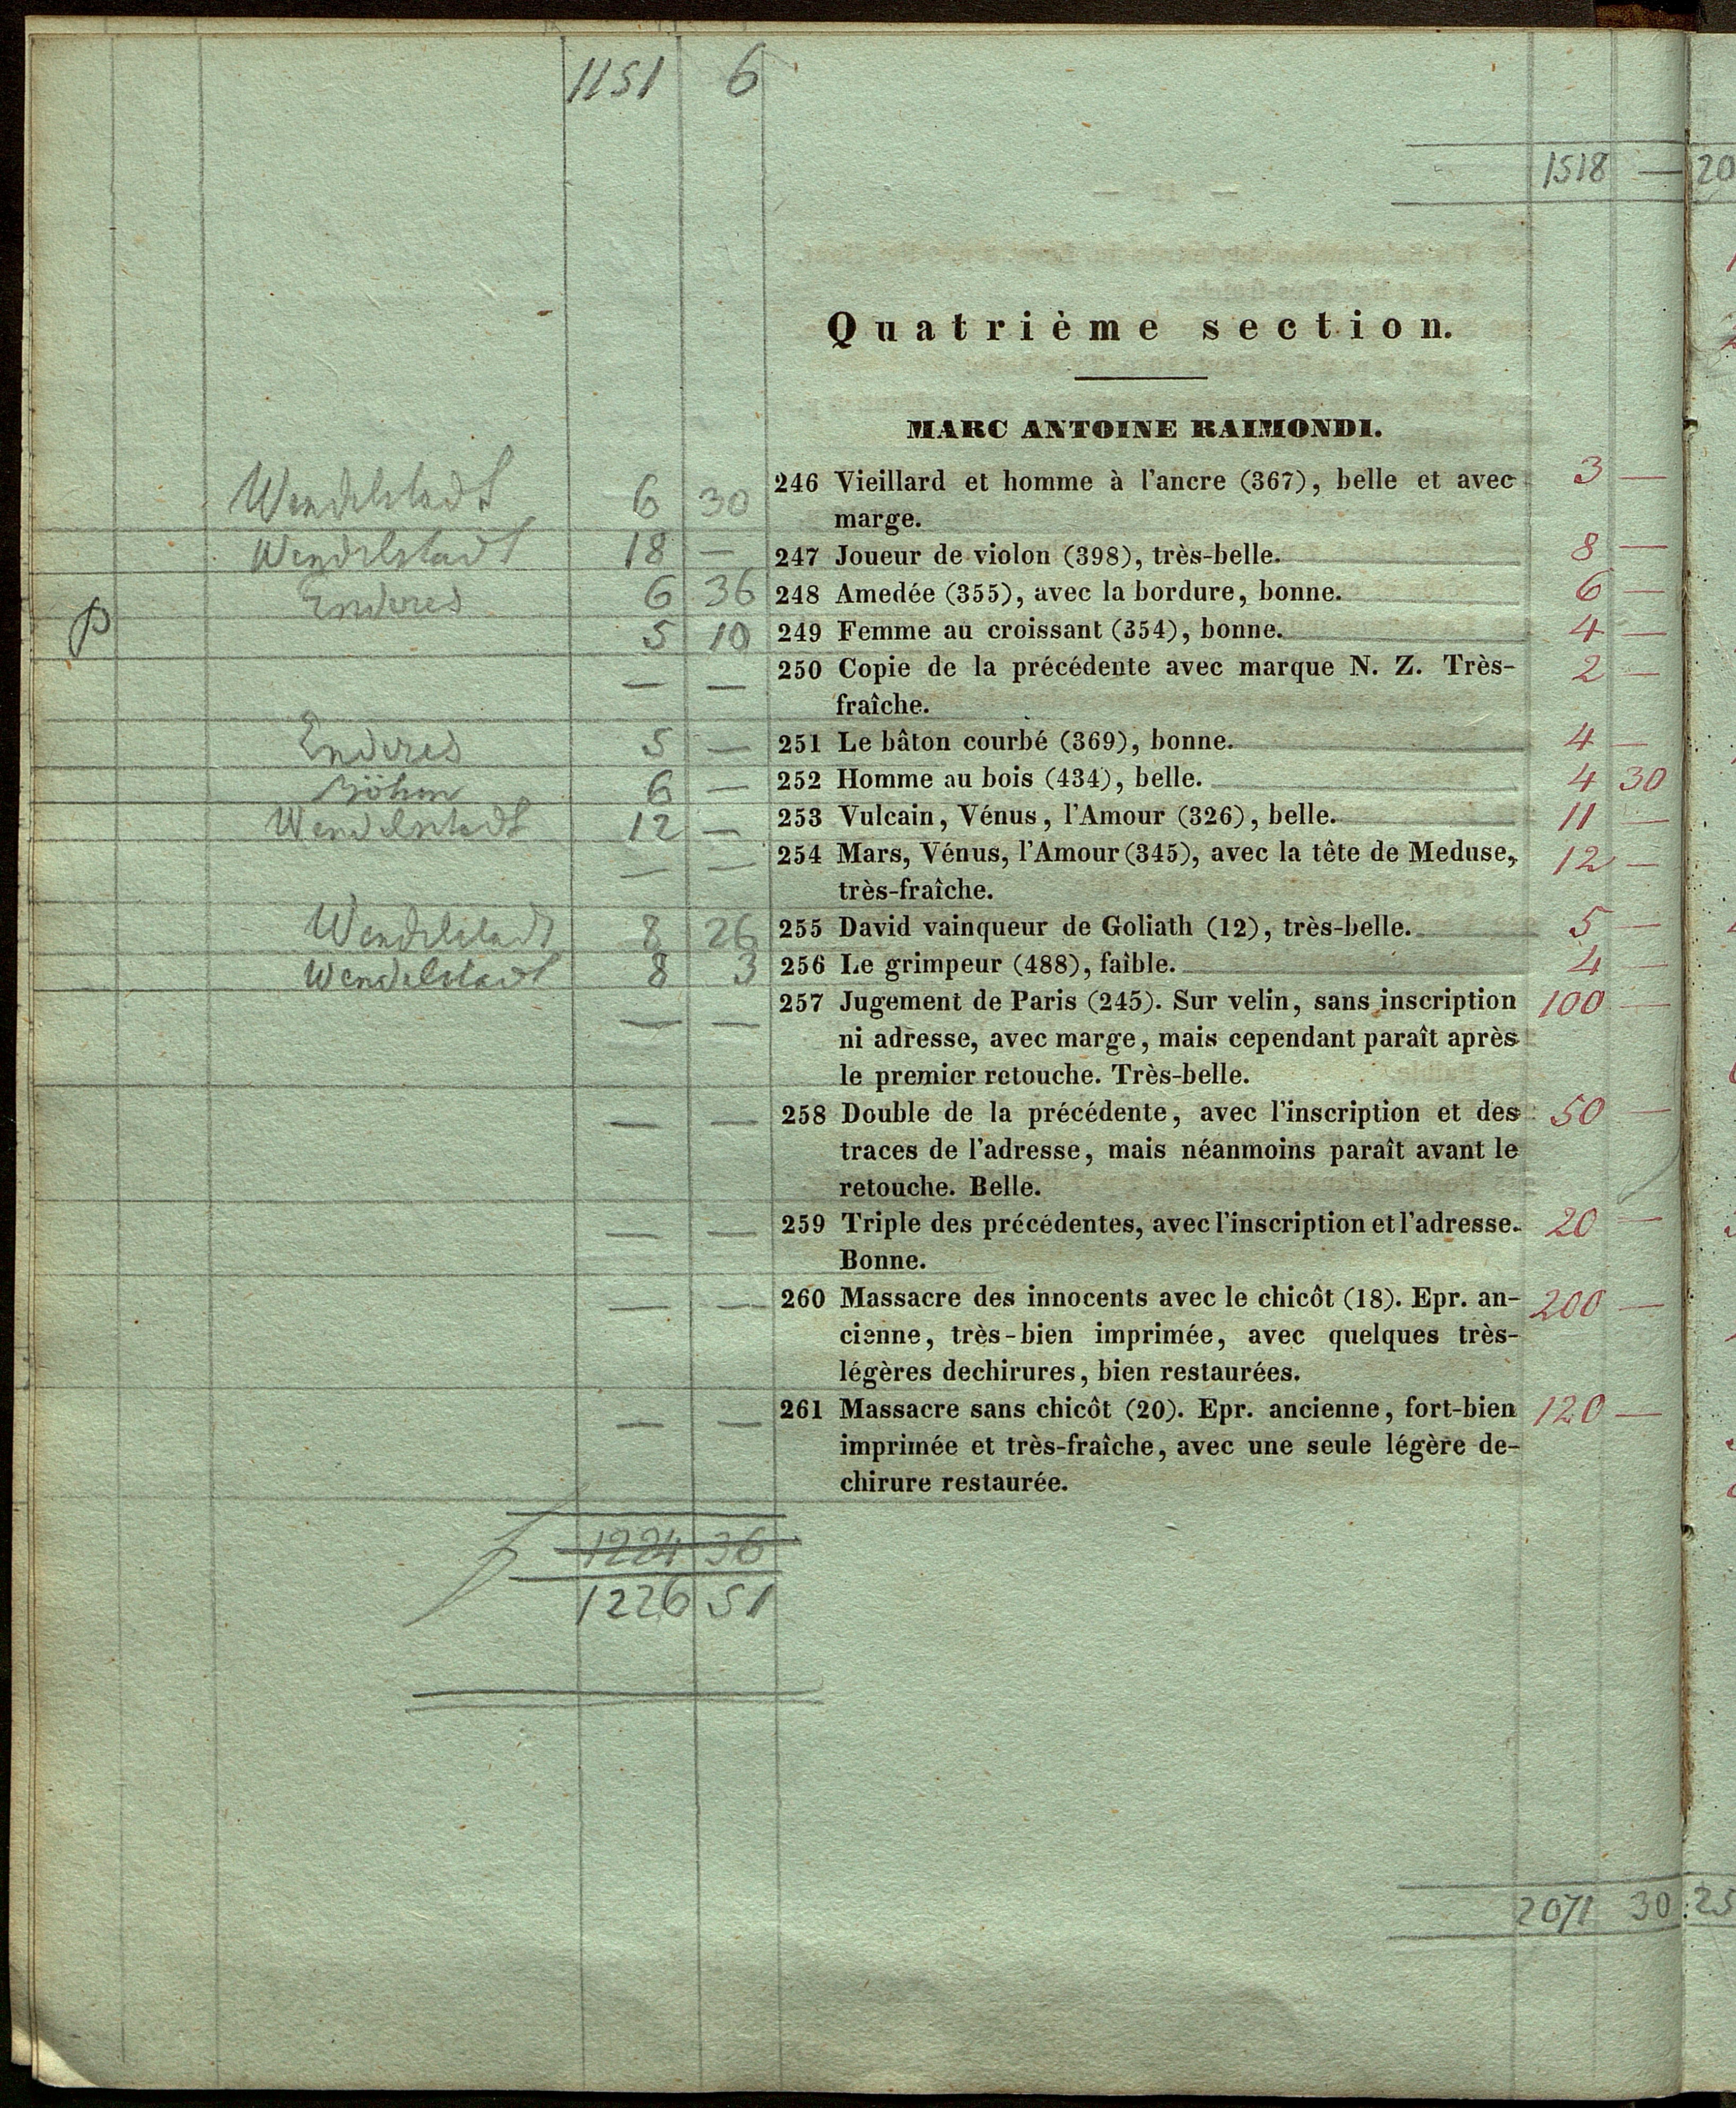 1151 6
1518 — 20
Quatrième section.
MARC ANTOINE RAIMONDI.
Wendelstadt 6 30 246 Vieillard et homme à l'ancre (367), belle et avec 3 —
marge.
Wendelstadt 18 — 247 Joueur de violon (398), très-belle. 8 —
Enderes 6 36 248 Amedée (355), avec la bordure, bonne. 6 —
5 10 249 Femme au croissant (354), bonne. 4 —
— — 250 Copie de la précédente avec marque N. Z. Très- 2 —
fraîche.
Enderes 5 — 251 Le bâton courbé (369), bonne. 4 —
Böhm 6 — 252 Homme au bois (434), belle. 4 30
Wendelstadt 12 — 253 Vulcain, Vénus, l'Amour (326), belle. 11 —
— — 254 Mars, Vénus, l'Amour (345), avec la tête de Meduse, 12 —
très-fraîche.
Wendelstadt 8 26 255 David vainqueur de Goliath (12), très-belle. 5 —
Wendelstadt 8 3 256 Le grimpeur (488), faible. 4 —
— — 257 Jugement de Paris (245). Sur velin, sans inscription 100 —
ni adresse, avec marge, mais cependant paraît après
le premier retouche. Très-belle.
— — 258 Double de la précédente, avec l'inscription et des 50 —
traces de l'adresse, mais néanmoins paraît avant le
retouche. Belle.
— — 259 Triple des précédentes, avec l'inscription et l'adresse. 20 —
Bonne.
— — 260 Massacre des innocents avec le chicôt (18). Epr. an- 200 —
cienne, très-bien imprimée, avec quelques très-
légères dechirures, bien restaurées.
— — 261 Massacre sans chicôt (20). Epr. ancienne, fort-bien 120 —
imprimée et très-fraîche, avec une seule légère de-
chirure restaurée.
1224 36
1226 51
2071 30 25